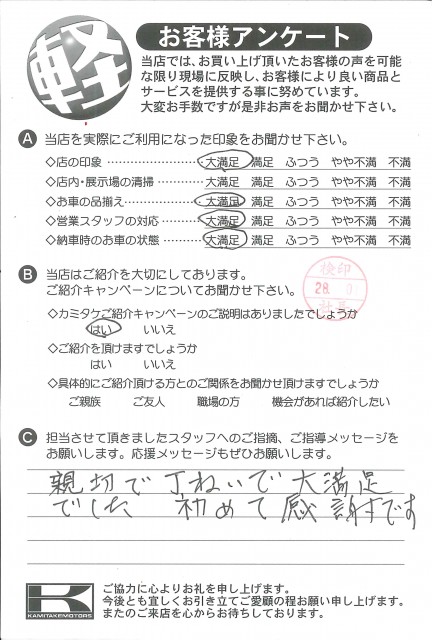 軽
お客様アンケート
当店では、お買い上げ頂いたお客様の声を可能
な限り現場に反映し、お客様により良い商品と
サービスを提供する事に努めています。
大変お手数ですが是非お声をお聞かせ下さい。
A 当店を実際にご利用になった印象をお聞かせ下さい。
◇店の印象 ………………… 大満足 満足 ふつう やや不満 不満
◇店内・展示場の清掃 ……… 大満足 満足 ふつう やや不満 不満
◇お車の品揃え …………… 大満足 満足 ふつう やや不満 不満
◇営業スタッフの対応 ……… 大満足 満足 ふつう やや不満 不満
◇納車時のお車の状態 ……… 大満足 満足 ふつう やや不満 不満
B 当店はご紹介を大切にしております。
ご紹介キャンペーンについてお聞かせ下さい。
検印
28.
社長
◇カミタケご紹介キャンペーンのご説明はありましたでしょうか
はい いいえ
◇ご紹介を頂けますでしょうか
はい いいえ
◇具体的にご紹介頂ける方とのご関係をお聞かせ頂けますでしょうか
ご親族 ご友人 職場の方 機会があれば紹介したい
C 担当させて頂きましたスタッフへのご指摘、ご指導メッセージを
お願いします。応援メッセージもぜひお願いします。
親切で丁ねいで大満足
でした 初めて感謝です
K
KAMITAKEMOTORS
ご協力に心よりお礼を申し上げます。
今後とも宜しくお引き立てご愛顧の程お願い申し上げます。
またのご来店を心からお待ちしております。